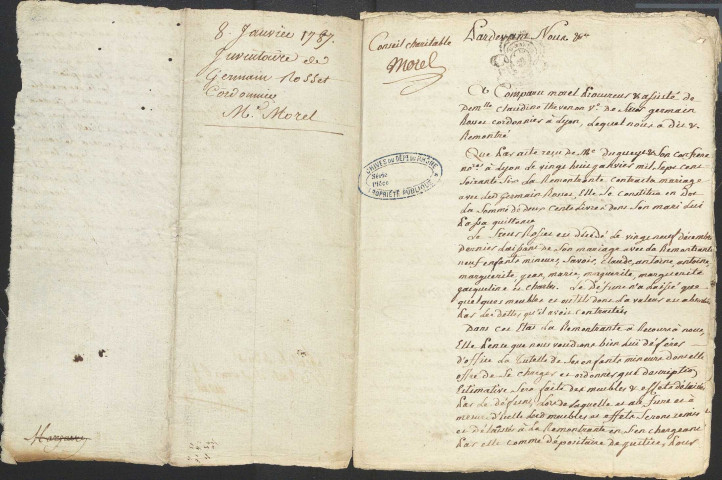 8. Janvier 1787.
Inventaire de
Germain Rosset
Cordonnier
Me. Morel
Conseil charitable
Morel
Pardevant Nous &a
A Comparu morel Procureur & assisté de
Demlle claudine thevenon ve. de sieur germain
Cordonnier à Lyon, Laquelle nous a dit &
Remontré
ARCHIVES DU DEPT DU RHÔNE
Série
Pièce
PROPRIÉTÉ PUBLIQUE
Que Par acte reçu de Me. Dugueyt & son confrere
nores à Lyon le vingt huit janvier mil sept cent
soixante La Remontrante contracta mariage
avec led Germain Elle se constitua en Dot
La somme de deux cents Livres dont son mari Lui
Passa quittance
Le sieur est décédé Le vingt neuf décembre
dernier Laissant de son mariage avec La Remontrante
neuf enfants mineurs, savoir, claude, antoine, antoine,
marguerite, jean, marie, marguerite, marguerite
jacqueline et charles. Le défunt n'a Laissé que
quelques meubles et outils dont La valeur est absorbée
Par Les dettes qu'il avoit contractées
Dans cet Etat La Remontrante a Recours à nous,
Elle Pense que nous voudrons bien Lui déférer
d'office La tutelle de ses enfants mineurs dont elle
offre de se charger et ordonner que description
Estimative sera faite des meubles & effets délaissés
Par Le défunt, Lors de Laquelle et au fur et à
mesure d'icelle Lesd meubles et effets seront remis
et délaissés à La Remontrante en s'en chargeant
Par elle comme dépositaire de justice, Pour